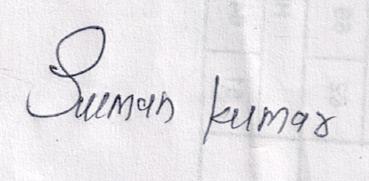 Suman kumar